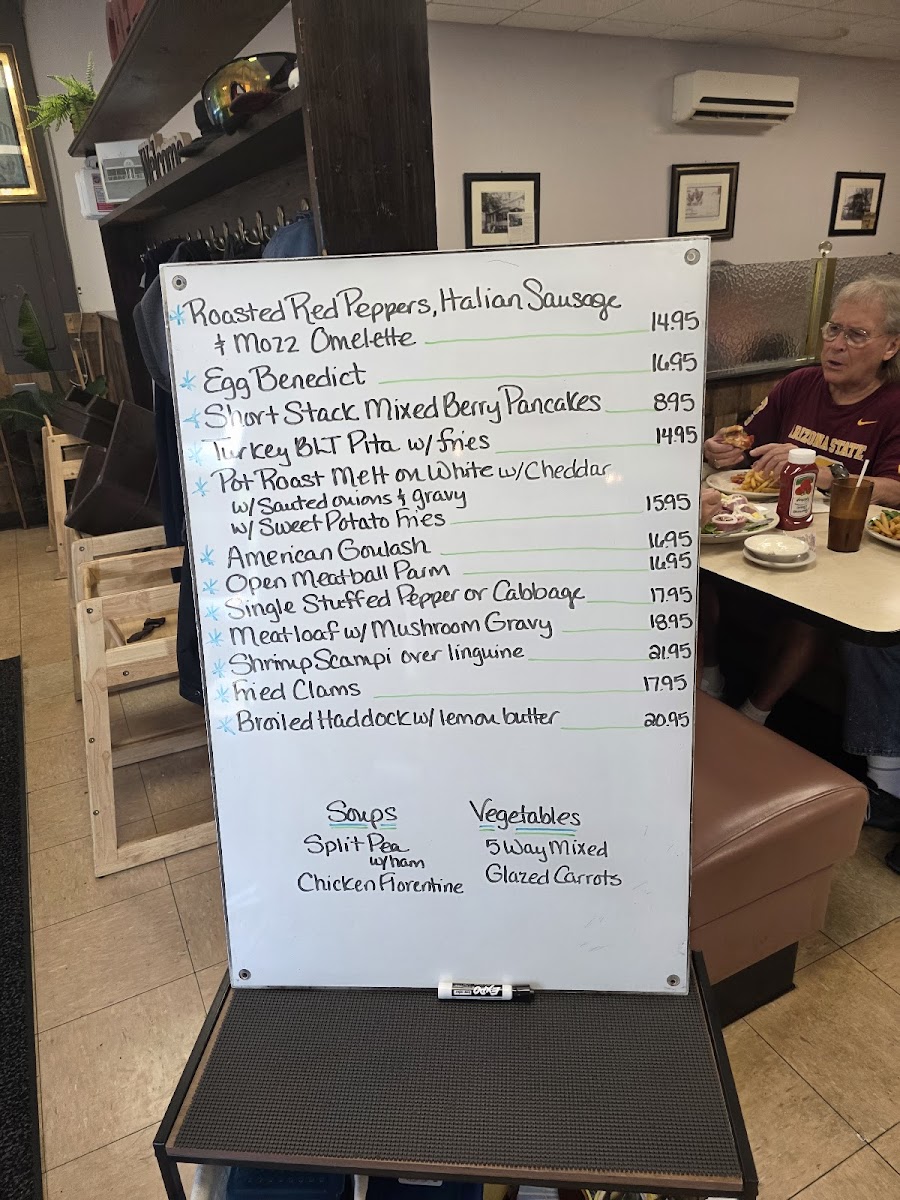 Welcome
* Roasted Red Peppers, Italian Sausage
+ Mozz Omelette 14.95
* Egg Benedict 16.95
* Short Stack Mixed Berry Pancakes 8.95
* Turkey BLT Pita w/ fries 14.95
* Pot Roast Melt on White w/ Cheddar
w/ Sauted onions & gravy
w/ Sweet Potato Fries 15.95
* American Goulash 16.95
* Open Meatball Parm 16.95
* Single Stuffed Pepper or Cabbage 17.95
* Meatloaf w/ Mushroom Gravy 18.95
* Shrimp Scampi over linguine 21.95
* Fried Clams 17.95
* Broiled Haddock w/ lemon butter 20.95
Soups
Split Pea
w/ ham
Chicken Florentine
Vegetables
5 Way Mixed
Glazed Carrots
EXPO
ARIZONA STATE